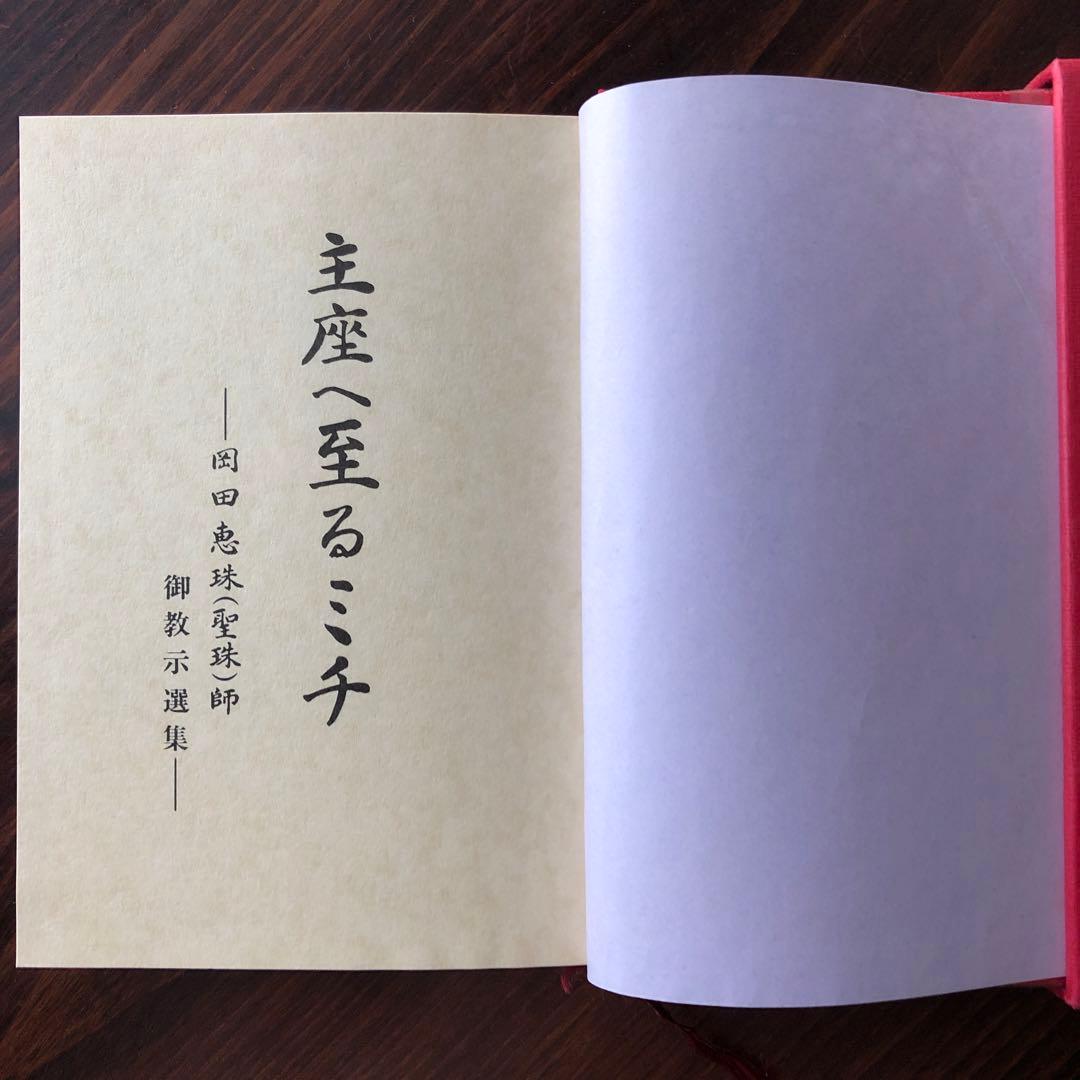 主座へ至るミチ
―岡田恵珠(聖珠)師
御教示選集―